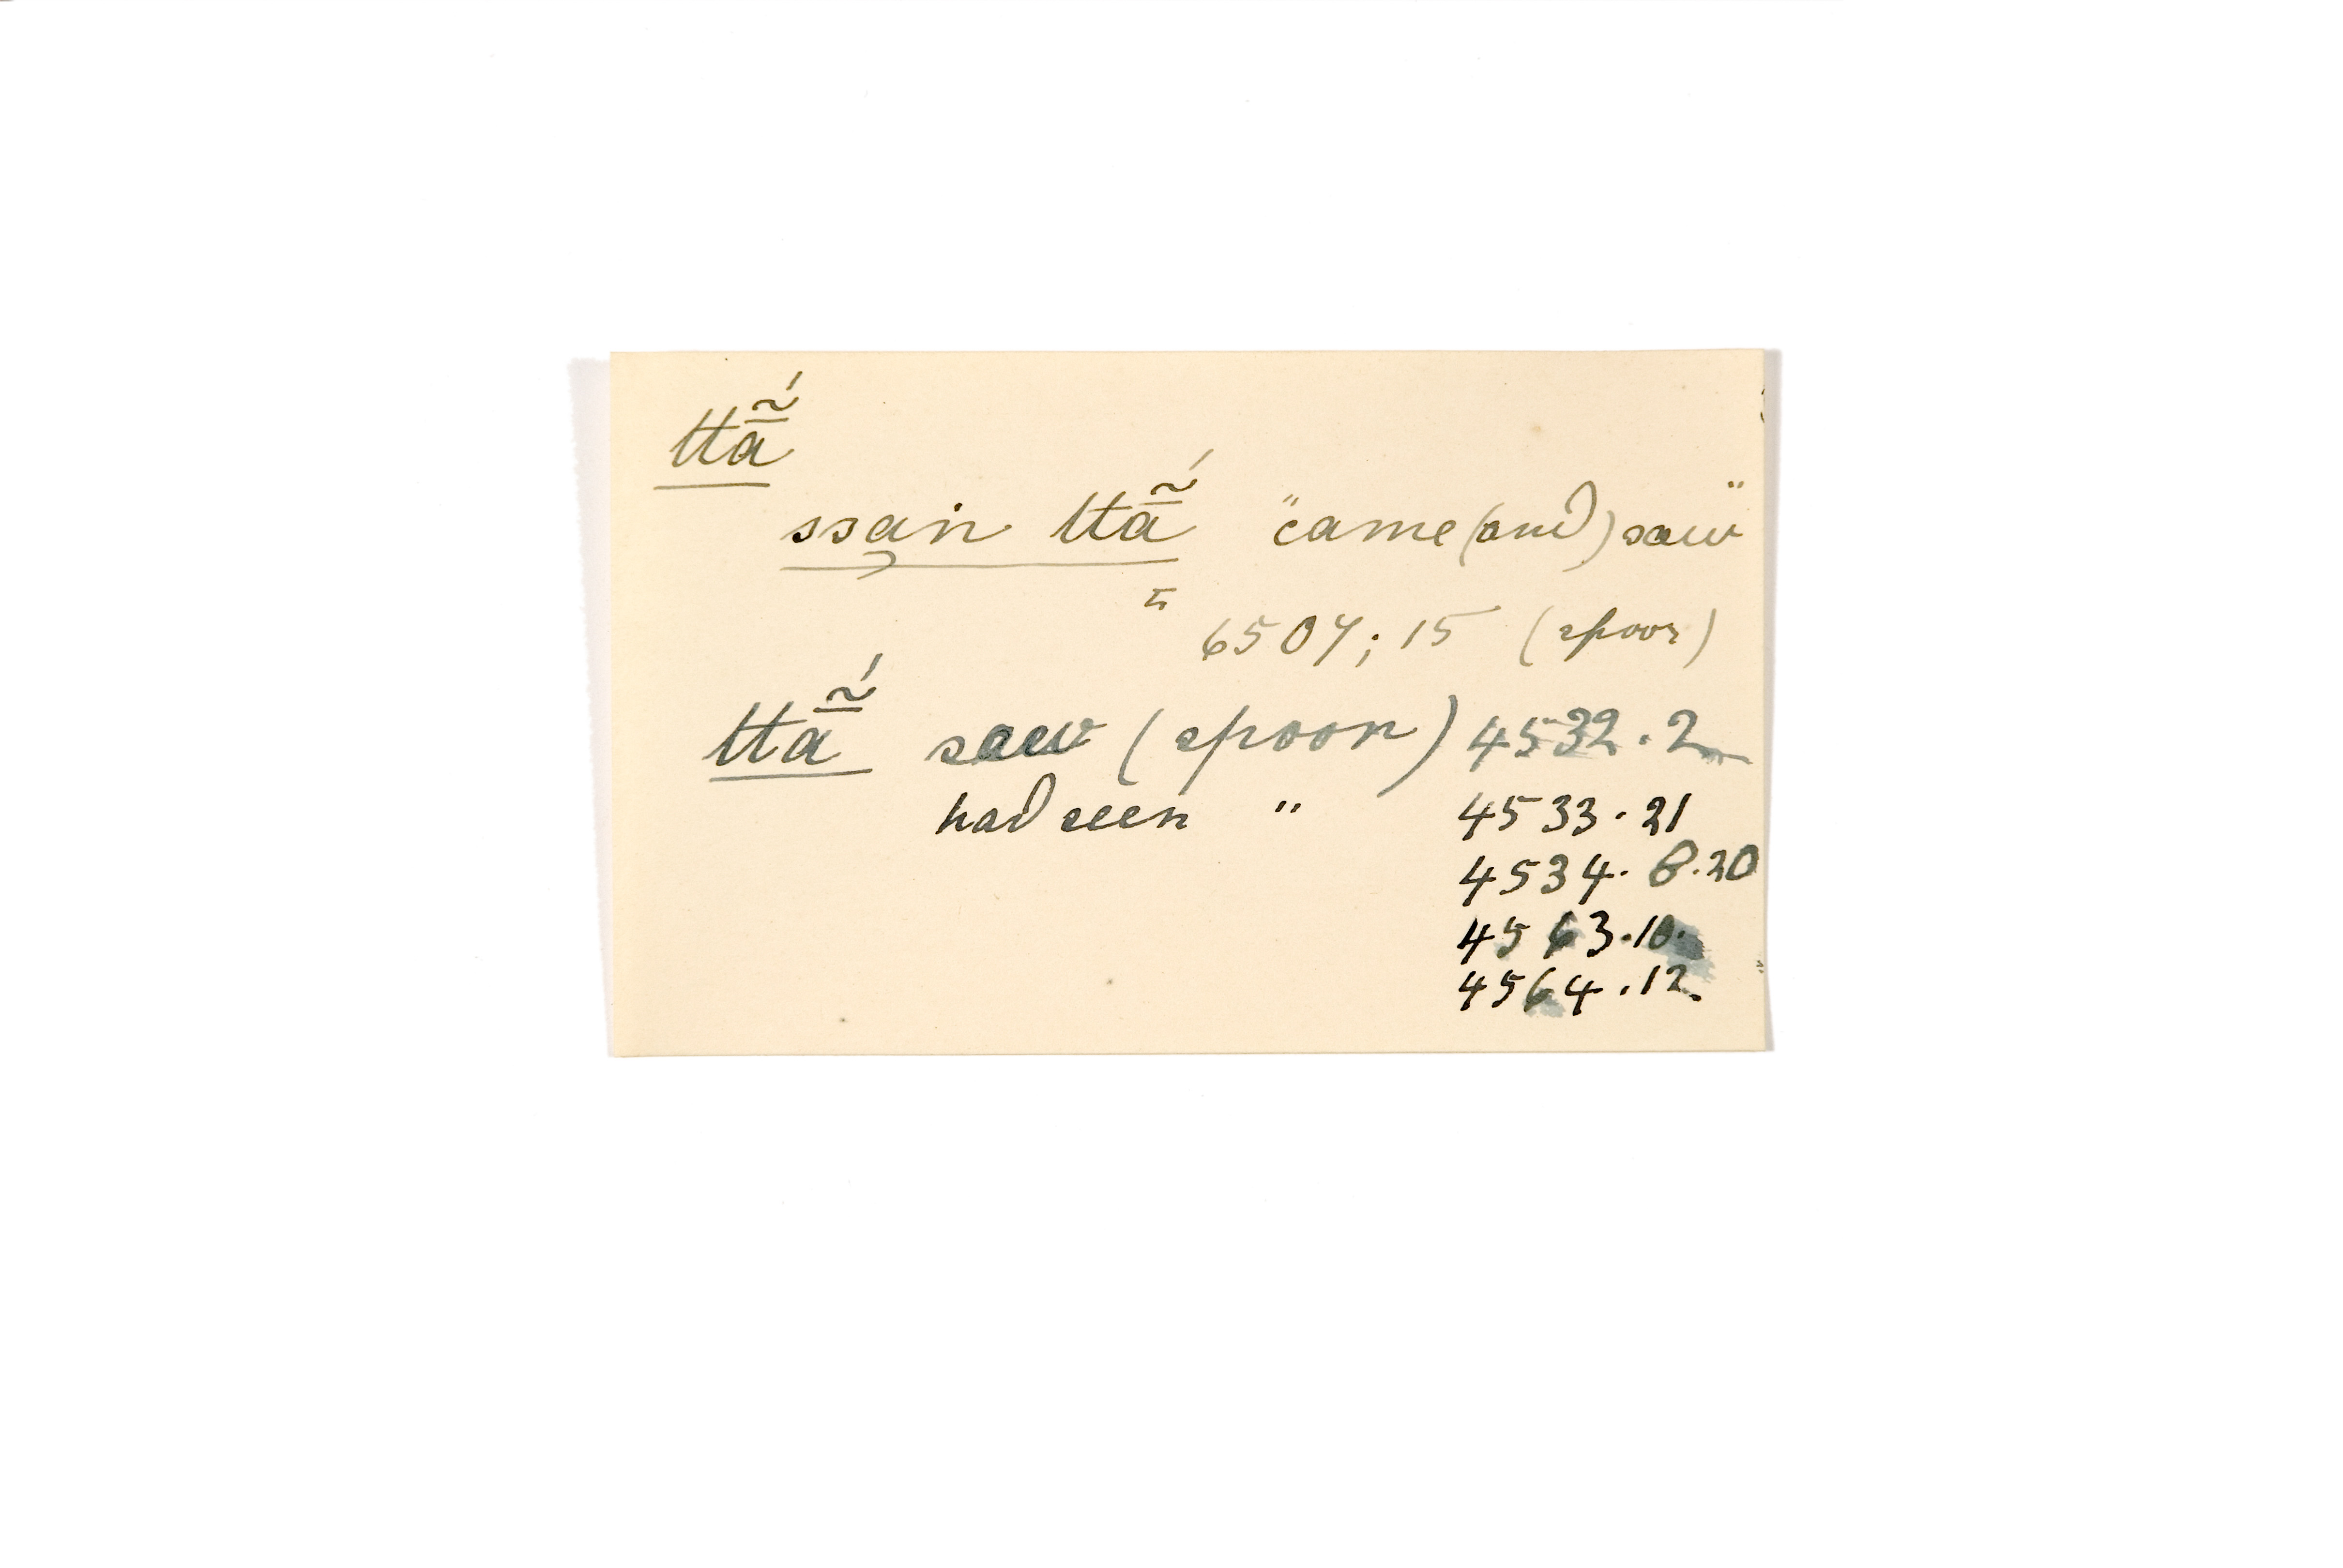 ttā̃́
ssa̱in ttā̃́ "came (and) saw"
6507; 15 (spoor)
ttā̃́ saw (spoor) 4532. 2
had seen " 4533. 21
4534. 8. 20
4563. 10.
4564. 12